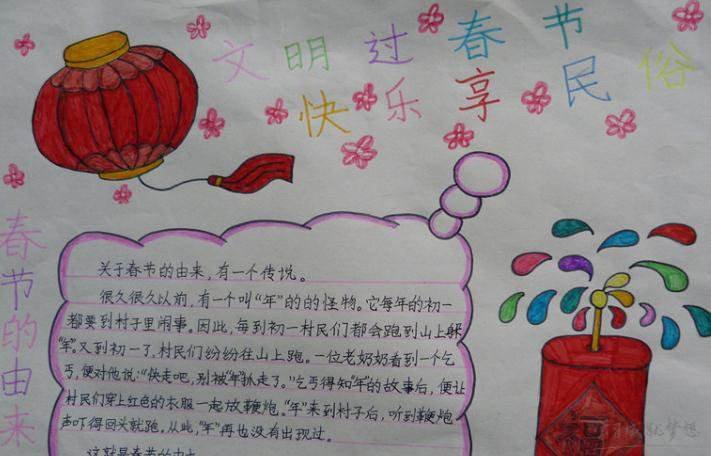 文明过春节
快乐享民俗
春节的由来
关于春节的由来，有一个传说。
很久很久以前，有一个叫“年”的的怪物。它每年的初一
都要到村子里闹事。因此，每到初一村民们都会跑到山上躲
“年”。又到初一了，村民们纷纷往山上跑。一位老奶奶看到一个乞
丐，便对他说：“快走吧，别被“年”扒走了。”乞丐得知“年”的故事后，便让
村民们穿上红色的衣服一起放鞭炮。“年”来到村子后，听到鞭炮
声吓得回头就跑。从此，“年”再也没有出现过。
这就是春节的由
福